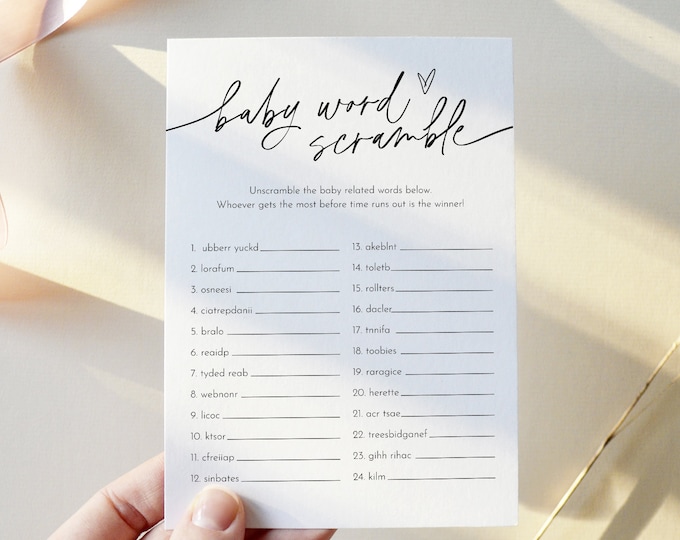 baby word
scramble
Unscramble the baby related words below.
Whoever gets the most before time runs out is the winner!
1. ubberr yuckd
2. lorafum
3. osneesi
4. ciatrepdanii
5. bralo
6. reaidp
7. tyded reab
8. webnonr
9. licoc
10. ktsor
11. cfreiiap
12. sinbates
13. akeblnt
14. toletb
15. rollters
16. dacler
17. tnnifa
18. toobies
19. raragice
20. herette
21. acr tsae
22. treesbidganef
23. gihh rihac
24. kilm